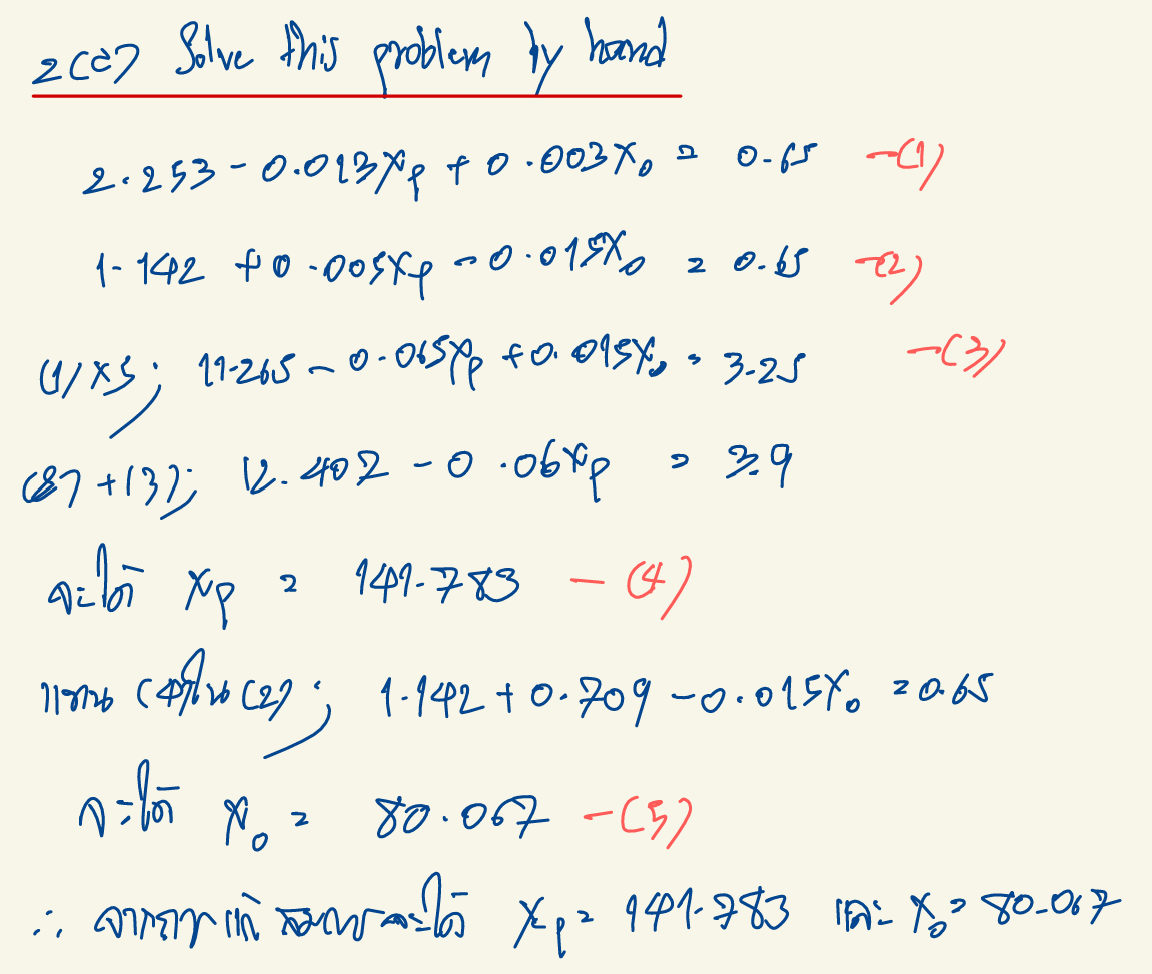 2(c) Solve this problem by hand
2.253 - 0.013Xp + 0.003X₀ = 0.65 -(1)
1.142 + 0.005Xp - 0.015X₀ = 0.65 -(2)
(1)×5; 11.265 - 0.065Xp + 0.015X₀ = 3.25 -(3)
(2)+(3); 12.407 - 0.06Xp = 3.9
จะได้ Xp = 141.783 -(4)
แทน (4)ใน(2); 1.142 + 0.709 - 0.015X₀ = 0.65
จะได้ X₀ = 80.067 -(5)
∴ จากการแก้สมการจะได้ Xp = 141.783 และ X₀ = 80.067